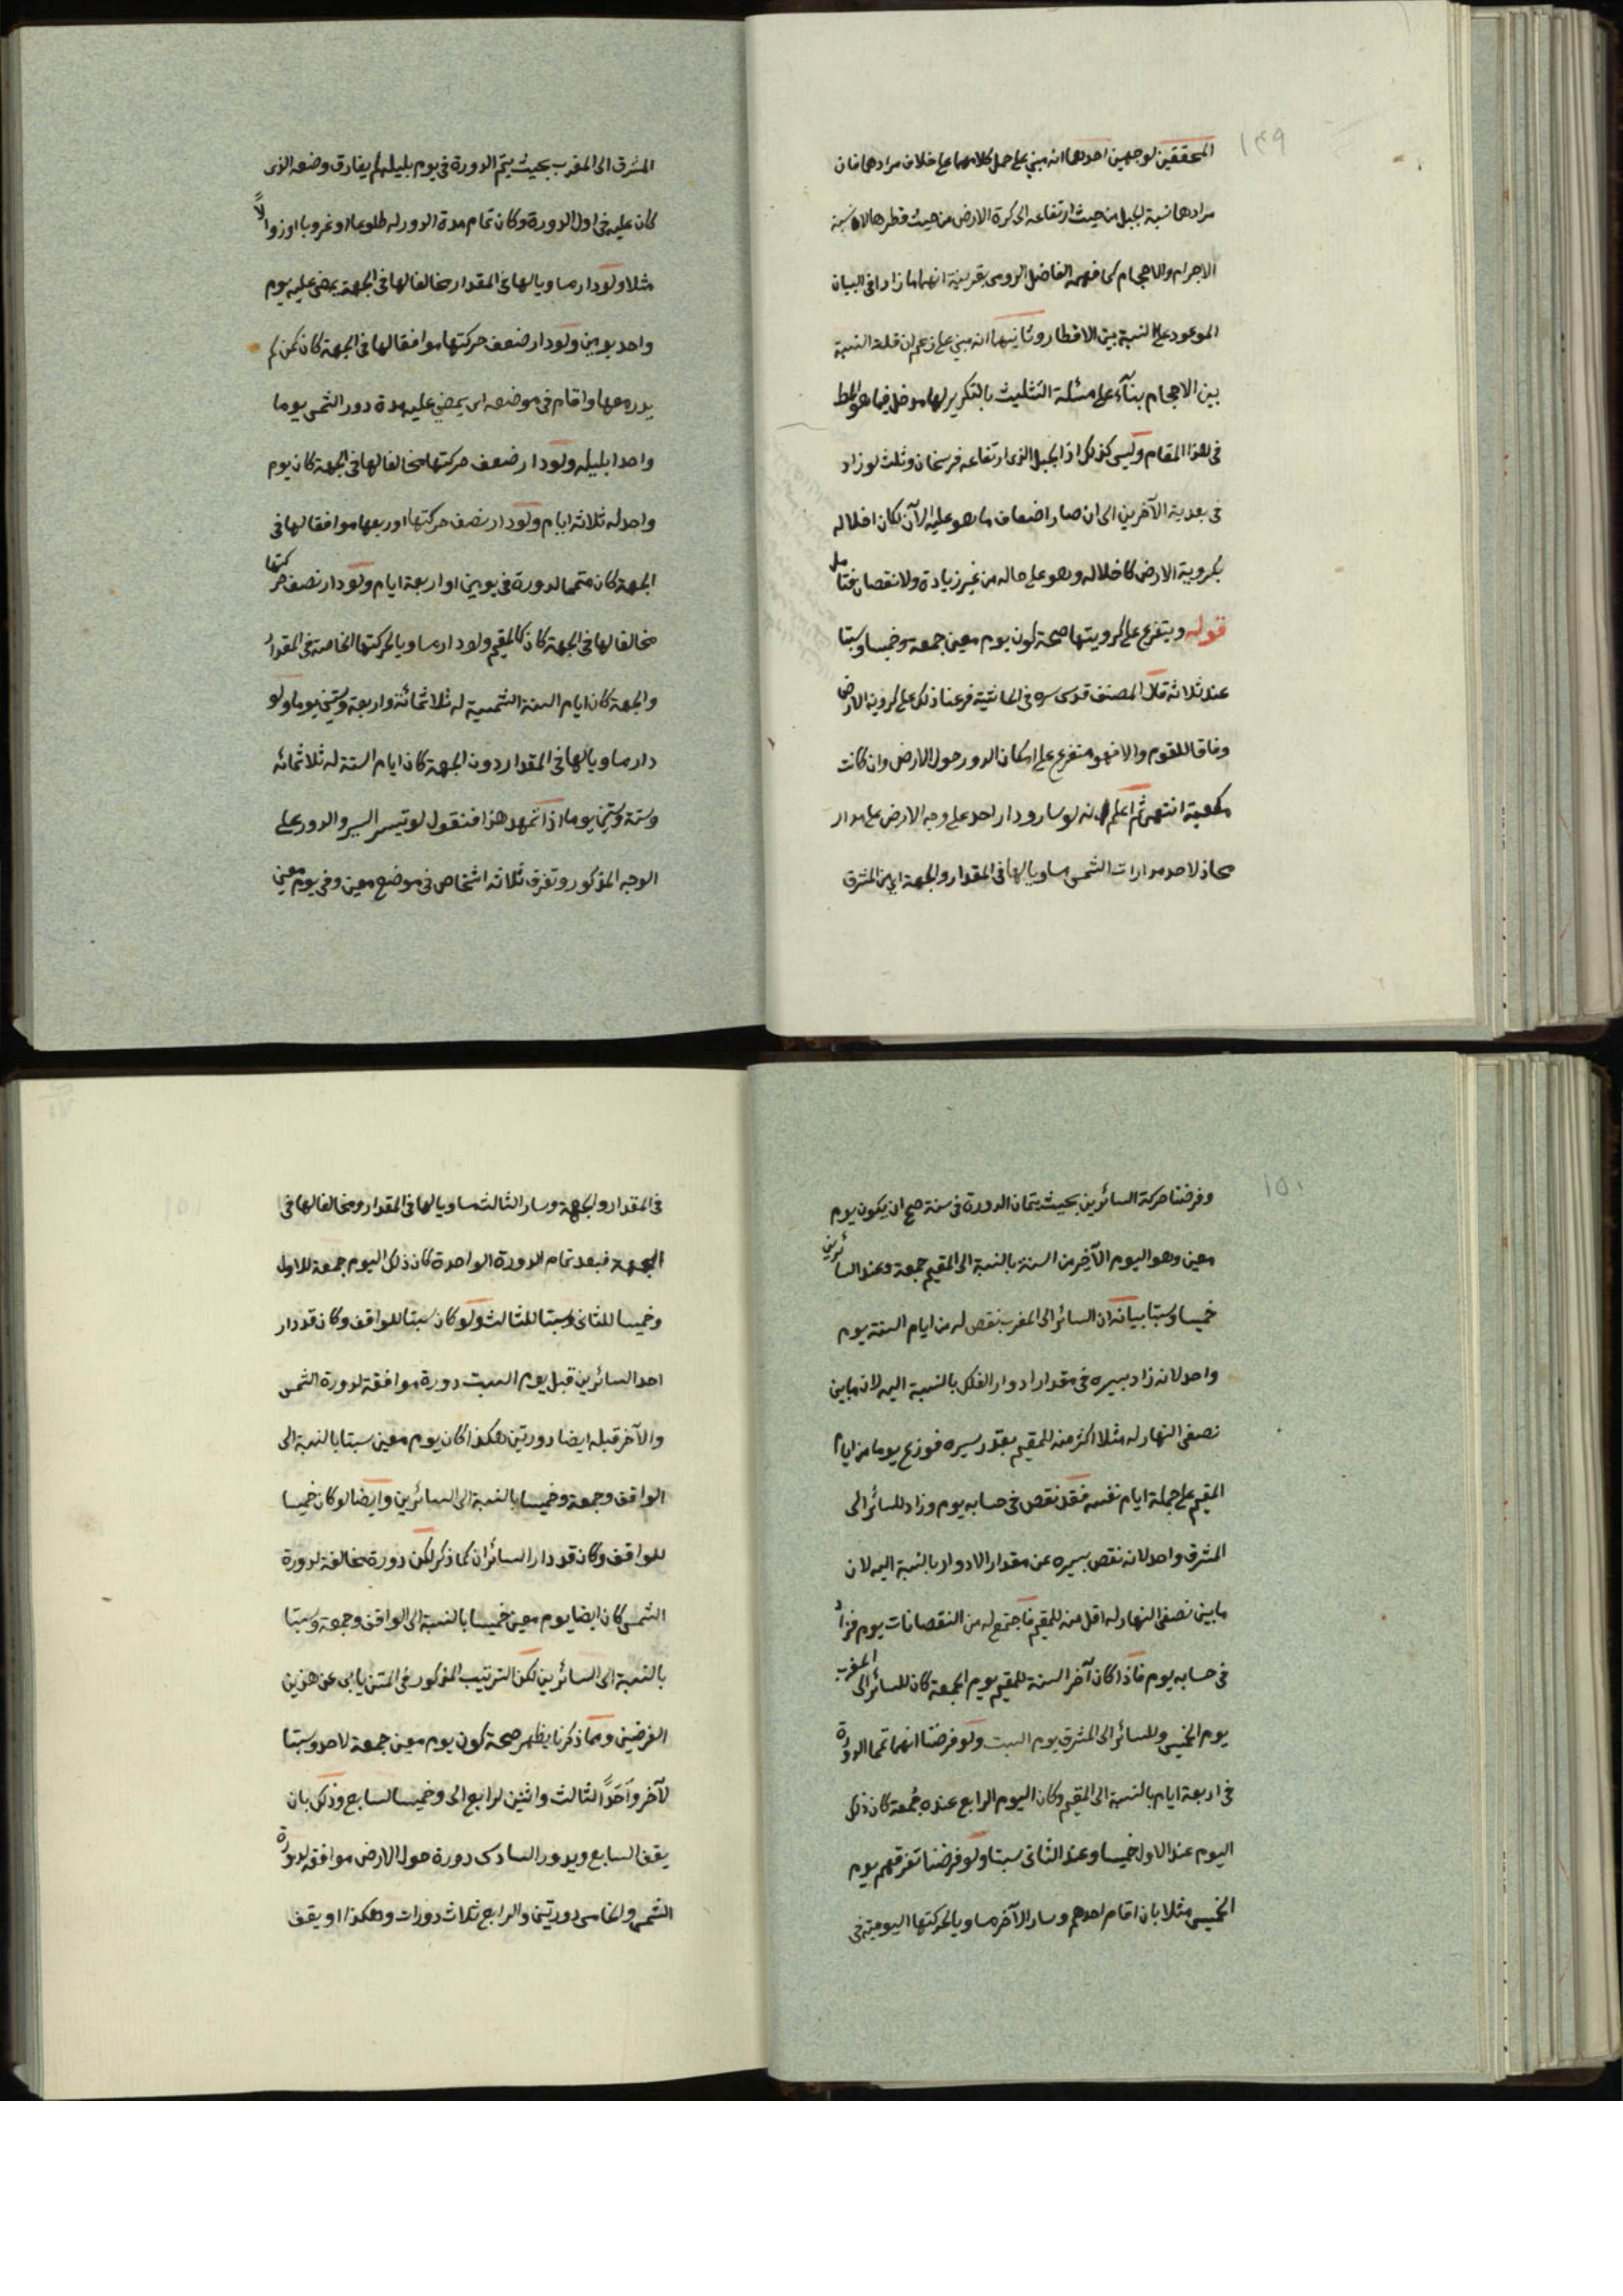 ١٤٩
المحققين لوجهين احدهما انه مبني على حمل كلامهما على خلاف مرادهما فان
مرادهما نسبة الجبل من حيث ارتفاعه الى كرة الارض من حيث قطرها لا نسبة
الاجرام والاحجام كما فهمه الفاضل الرومى بقرينة انهما ما زادا فى البيان
الموعود على النسبة بين الاقطار وثانيهما انه مبني على زعم ان قلة النسبة
بين الاحجام بنآء على مسئلة التثليث بالتكرير لها مدخل فيما هو المط
فى هذا المقام وليس كذلك اذ الجبل الذى ارتفاعه فرسخان وثلث لو زاد
فى بعديه الآخرين الى ان صار اضعاف ما هو عليه الآن لكان اخلاله
بكروية الارض كاخلاله وهو على حاله من غير زيادة ولا نقصان فتامل
قوله ويتفرع على كرويتها صحة كون يوم معين جمعة وخميسا وسبتا
عند ثلاثة قال المصنف قدس سره فى الحاشية فرعنا ذلك على كروية الارض
وفاقا للقوم والا فهو متفرع على امكان الدور حول الارض وان كانت
مكعبة انتهى ثم اعلم انه لو سار ودار احد على وجه الارض على مدار
محاذ لاحد مدارات الشمس مساويا لها فى المقدار والجهة اى من المشرق
المشرق الى المغرب بحيث يتم الدورة فى يوم بليلته لم يفارق وضعه الذى
كان عليه فى اول الدورة وكان تمام مدة الدور له طلوعا او غروبا او زوالاً
مثلا ولو دار مساويا لها فى المقدار مخالفا لها فى الجهة يمضى عليه يوم
واحد يومين ولو دار ضعف حركتها موافقا لها فى الجهة كان كمن لم
يدر معها واقام فى موضعه اى يمضي عليه مدة دور الشمس يوما
واحدا بليله ولو دار ضعف حركتها مخالفا لها فى الجهة كان يوم
واحد له ثلاثة ايام ولو دار نصف حركتها او ربعها موافقا لها فى
الجهة كان متمما لدورة فى يومين او اربعة ايام ولو دار نصف حركتها
مخالفا لها فى الجهة كان كالمقيم ولو دار مساويا لحركتها الخاصة فى المقدار
والجهة كان ايام السنة الشمسية له ثلاثمائة واربعة وستين يوما ولو
دار مساويا لها فى المقدار دون الجهة كان ايام السنة له ثلاثمائه
وستة وستين يوما اذا تمهد هذا فنقول لو تيسر السير والدور على
الوجه المذكور وتفرق ثلاثه اشخاص فى موضع معين وفى يوم معين
١٥٠
وفرضنا حركة السائرين بحيث يتمان الدورة فى سنة صح ان يكون يوم
معين وهو اليوم الآخر من السنة بالنسبة الى المقيم جمعة وعند السائرين
خميسا وسبتا بيانه ان السائر الى المغرب ينقص له من ايام السنة يوم
واحد لانه زاد بسيره فى مقدار ادوار الفلك بالنسبة اليه لان ما بين
نصفى النهار له مثلا اكثر منه للمقيم بقدر سيره فوزع يوما من ايام
المقيم على جملة ايام نفسه فقد نقص فى حسابه يوم وزاد للسائر الى
المشرق واحد لانه نقص بسيره عن مقدار الادوار بالنسبة اليه لان
ما بين نصفى النهار له اقل منه للمقيم فاجتمع له من النقصانات يوم فزاد
فى حسابه يوم فاذا كان آخر السنة للمقيم يوم الجمعة كان للسائر الى المغرب
يوم الخميس وللسائر الى المشرق يوم السبت ولو فرضنا انهما تمما الدورة
فى اربعة ايام بالنسبة الى المقيم وكان اليوم الرابع عنده جمعة كان ذلك
اليوم عند الاول خميسا وعند الثانى سبتا ولو فرضنا تفرقهم يوم
الخميس مثلا بان اقام احدهم وسار الآخر مساويا لحركتها اليومية فى
فى المقدار والجهة وسار الثالث مساويا لها فى المقدار ومخالفا لها فى
الجهة فبعد تمام الدورة الواحدة كان ذلك اليوم جمعة للاول
وخميسا للثانى وسبتا للثالث ولو كان سبتا للواقف وكان قد دار
احد السائرين قبل يوم السبت دورة موافقة لدورة الشمس
والآخر قبله ايضا دورتين هكذا كان يوم معين سبتا بالنسبة الى
الواقف وجمعة وخميسا بالنسبة الى السائرين وايضا لو كان خميسا
للواقف وكان قد دار السائران كما ذكر لكن دورة مخالفة لدورة
الشمس كان ايضا يوم معين خميسا بالنسبة الى الواقف وجمعة وسبتا
بالنسبة الى السائرين لكن الترتيب المذكور فى المتن يابى عن هذين
الفرضين ومما ذكرنا يظهر صحة كون يوم معين جمعة لاحد وسبتا
لآخر وأحداً لثالث واثنين لرابع الى وخميسا لسابع وذلك بان
يقف السابع ويدور السادس دورة حول الارض موافقة لدورة
الشمس والخامس دورتين والرابع ثلاث دورات وهكذا او يقف